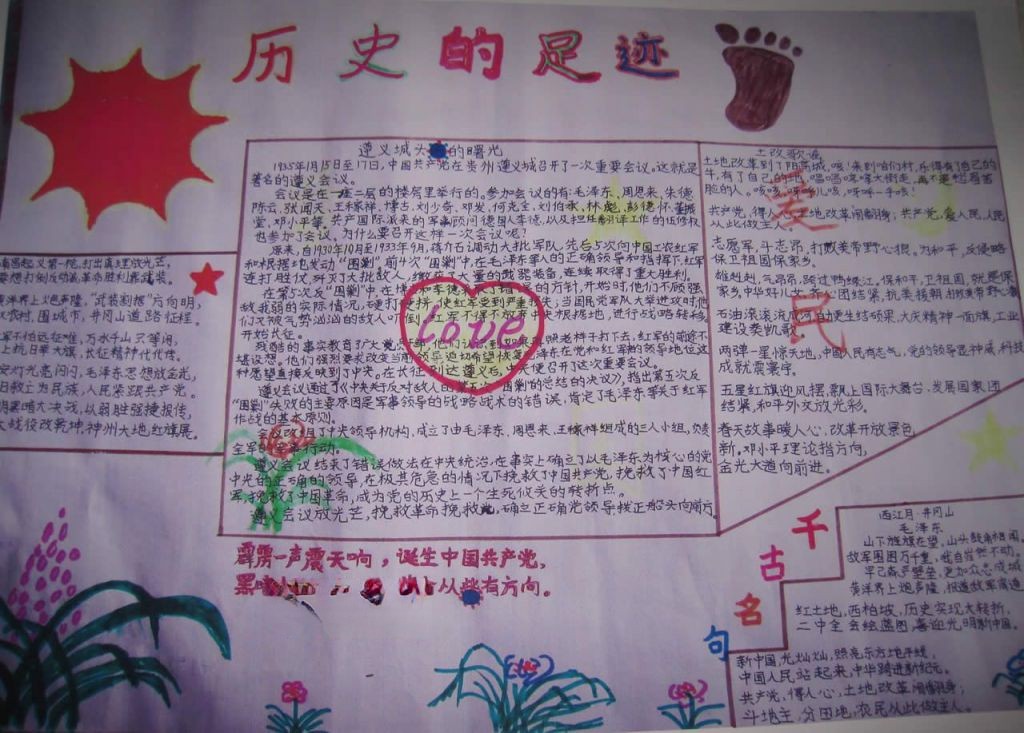 历史的足迹
遵义城头的曙光
1935年1月15日至17日,中国共产党在贵州遵义城召开了一次重要会议。这就是
著名的遵义会议。
会议是在一座二层的楼房里举行的。参加会议的有:毛泽东、周恩来、朱德
陈云、张闻天、王稼祥、博古、刘少奇、邓发、何克全、刘伯承、林彪、彭德怀、董振
堂、邓小平等。共产国际派来的军事顾问德国人李德,以及担任翻译工作的伍修权
也参加了会议。为什么要召开这样一次会议呢?
原来,自1930年10月至1933年9月,蒋介石调动大批军队,先后5次向中国工农红军
和根据地发动“围剿”,前4次“围剿”中,在毛泽东等人的正确领导和指挥下,红军
连打胜仗,歼灭了大批敌人,缴获了大量的武器装备,连续取得了重大胜利。
在第5次反“围剿”中
的方针,开始时,他们不顾强
敌我弱的实际情况,硬打硬拼,使红军受到严重
当国民党军队大举进攻时,他
们又被气势汹汹的敌人吓倒,红军不得不放弃中央根据地,进行战略转移
开始长征。
残酷的事实教育了大家
照老样子打下去,红军的前途不
堪设想。他们强烈要求改变当前领导,迫切希望恢复毛泽东在党和红军的领导地位这
种愿望直接反映到了中央。在长征到达遵义后,中央便召开了这次重要会议。
遵义会议通过了《中央关于反对敌人的第五次“围剿”的总结的决议》,指出第五次反
“围剿”失败的主要原因是军事领导的战略战术的错误,肯定了毛泽东等关于红军
作战的基本原则。
会议改组了中央领导机构,成立了由毛泽东、周恩来、王稼祥组成的三人小组,负责
全军的军事行动。
遵义会议结束了错误做法在中央统治,在事实上确立了以毛泽东为核心的党
中央的正确的领导,在极其危急的情况下挽救了中国共产党,挽救了中国红
军,挽救了中国革命,成为党的历史上一个生死攸关的转折点。
遵义会议放光芒,挽救革命挽救党,确立正确党领导拨正船头向前方
Love
霹雳一声震天响,诞生中国共产党,
从此有方向。
南昌起义第一枪,打出真理放光芒,
要想打倒反动派,革命胜利靠武装。
黄洋界上火炮声隆,“武装割据”方向明,
农村,围城市,井冈山道路征程。
军不怕远征难,万水千山只等闲,
上抗日举大旗,长征精神代代传。
安灯光亮闪闪,毛泽东思想放金光,
日救亡为民族,人民紧跟共产党。
大决战,以弱胜强捷报传,
大战役改乾坤,神州大地红旗展。
土改歌谣
爱民
共产党,得人心,土地改革闹翻身;共产党,爱人民,人民
从此做主人。
志愿军,斗志昂,打败美帝野心狼。为和平,反侵略
保卫祖国保家乡。
雄赳赳,气昂昂,跨过鸭绿江。保和平,卫祖国,就是保
家乡。中华好儿女,齐心团结紧,抗美援朝,打败美帝野心狼
石油滚滚流成河,自力更生结硕果,大庆精神一面旗,工业
建设奏凯歌。
两弹一星惊天地,中国人民有志气,党的领导显神威,科技
成就震寰宇。
五星红旗迎风摆,飘上国际大舞台,发展国家团
结紧,和平外交放光彩。
春天故事暖人心,改革开放景色
新。邓小平理论指方向,
金光大道向前进。
千古名句
西江月·井冈山
毛泽东
山下旌旗在望,山头鼓角相闻。
敌军围困万千重,我自岿然不动。
早已森严壁垒,更加众志成城
黄洋界上炮声隆,报道敌军宵遁
红土地,西柏坡,历史实现大转折,
二中全会绘蓝图,喜迎光明新中国。
新中国,光灿灿,照亮东方地平线,
中国人民站起来,中华跨进新纪元。
共产党,得人心,土地改革闹翻身;
斗地主,分田地,农民从此做主人。